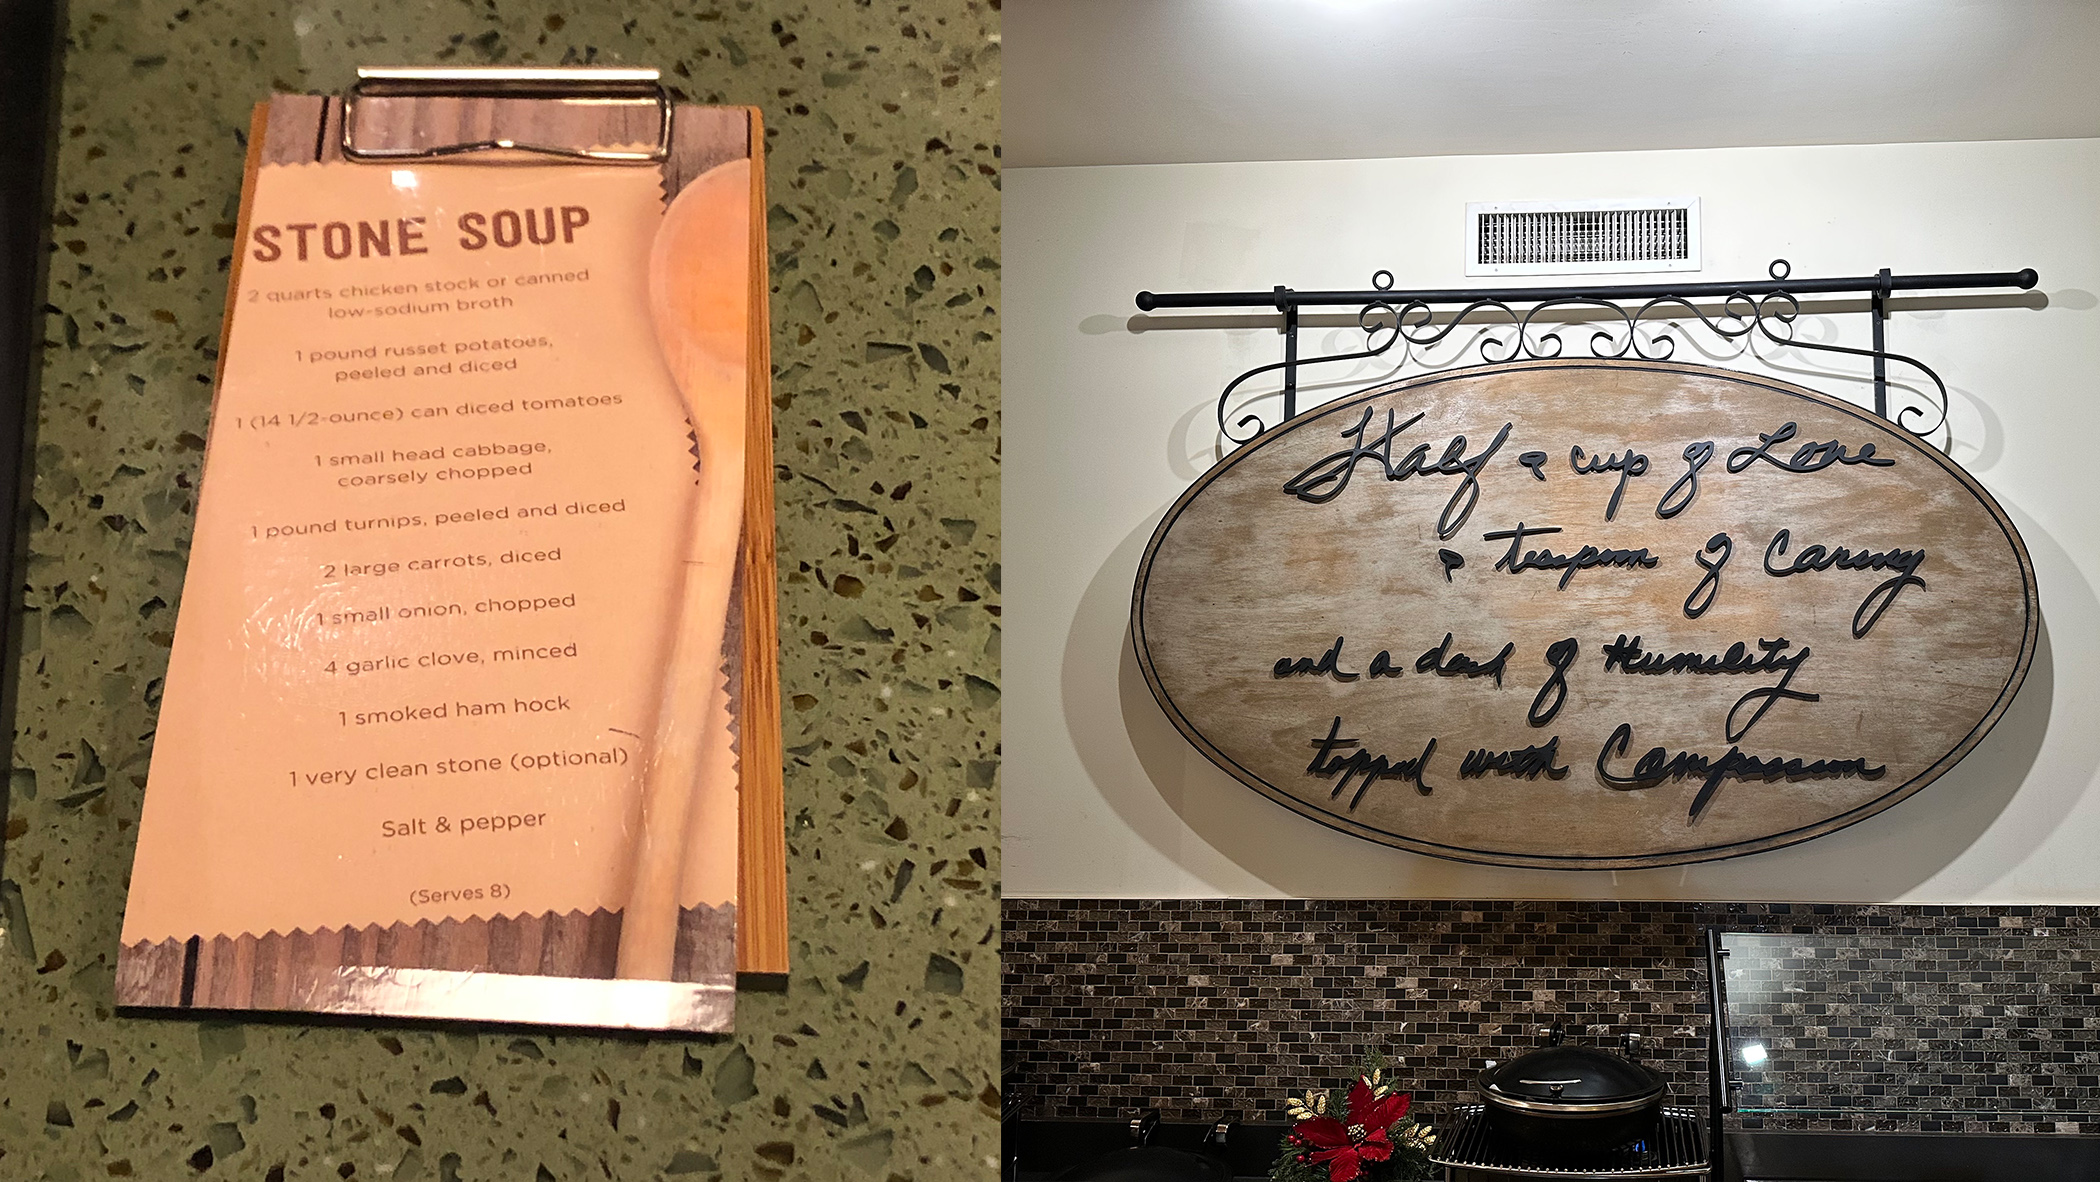 STONE SOUP
2 quarts chicken stock or canned
low-sodium broth
1 pound russet potatoes,
peeled and diced
1 (14 1/2-ounce) can diced tomatoes
1 small head cabbage,
coarsely chopped
1 pound turnips, peeled and diced
2 large carrots, diced
1 small onion, chopped
4 garlic clove, minced
1 smoked ham hock
1 very clean stone (optional)
Salt & pepper
(Serves 8)
Half a cup of Love
a teaspoon of Caring
and a dash of Humility
topped with Compassion